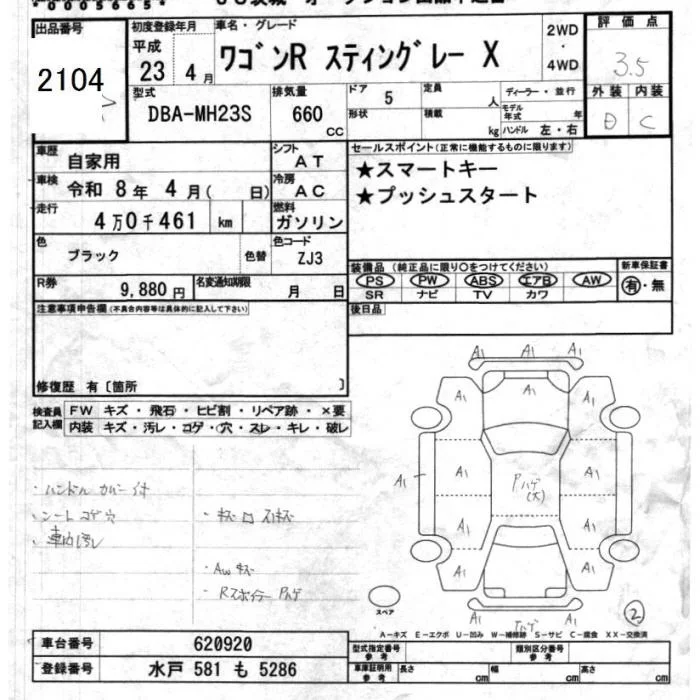 0005665
出品番号
2104
初度登録年月
平成
23年 4月
車名・グレード
ワゴンR スティングレー X
2WD
・
4WD
評価点
3.5
型式
DBA-MH23S
排気量
660
CC
ドア
5
定員
人
形状
積載
kg
ディーラー・並行
モデル年式
年
ハンドル 左・右
外装 内装
C
車歴
自家用
シフト
AT
車検
令和 8年 4月( 日)
冷房
AC
走行
4万0千461 km
燃料
ガソリン
色
ブラック
色替
色コード
ZJ3
R券
9,880円
名変通知期限
月 日
セールスポイント(正常に機能するものに限ります)
★スマートキー
★プッシュスタート
装備品 (純正品に限り○をつけてください)
新車保証書
PS PW ABS エアB AW
有・無
SR ナビ TV カワ
後日品
注意事項申告欄(不具合内容等は具体的に記入して下さい)
修復歴 有〔箇所 〕
検査員記入欄
FW キズ・飛石・ヒビ割・リペア跡・×要
内装 キズ・汚レ・コゲ・穴・スレ・キレ・破レ
・ハンドル カバー付
・シート コゲ穴
・車内汚レ
・キズ 凹 スリキズ
・AW キズ
・Rスポイラー Pハゲ
A1 A1 A1
A1 A1 A1
A1 A1 Pハゲ(大) A1
A1 A1
A1 A1
A1 A1
Pハゲ
スペア
2
A−キズ E−エクボ U−凹み W−補修跡 S−サビ C−腐食 XX−交換済
車台番号
620920
登録番号
水戸 581 も 5286
型式指定番号
参考
類別区分番号
参考
車庫証明用
参考
長さ
cm
幅
cm
高さ
cm